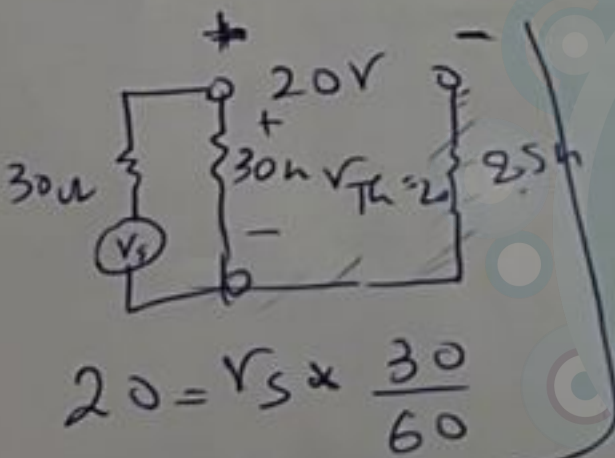 + −
20V
+
30Ω 30Ω VTh = 2 25Ω
Vs
−
20 = Vs × 30/60